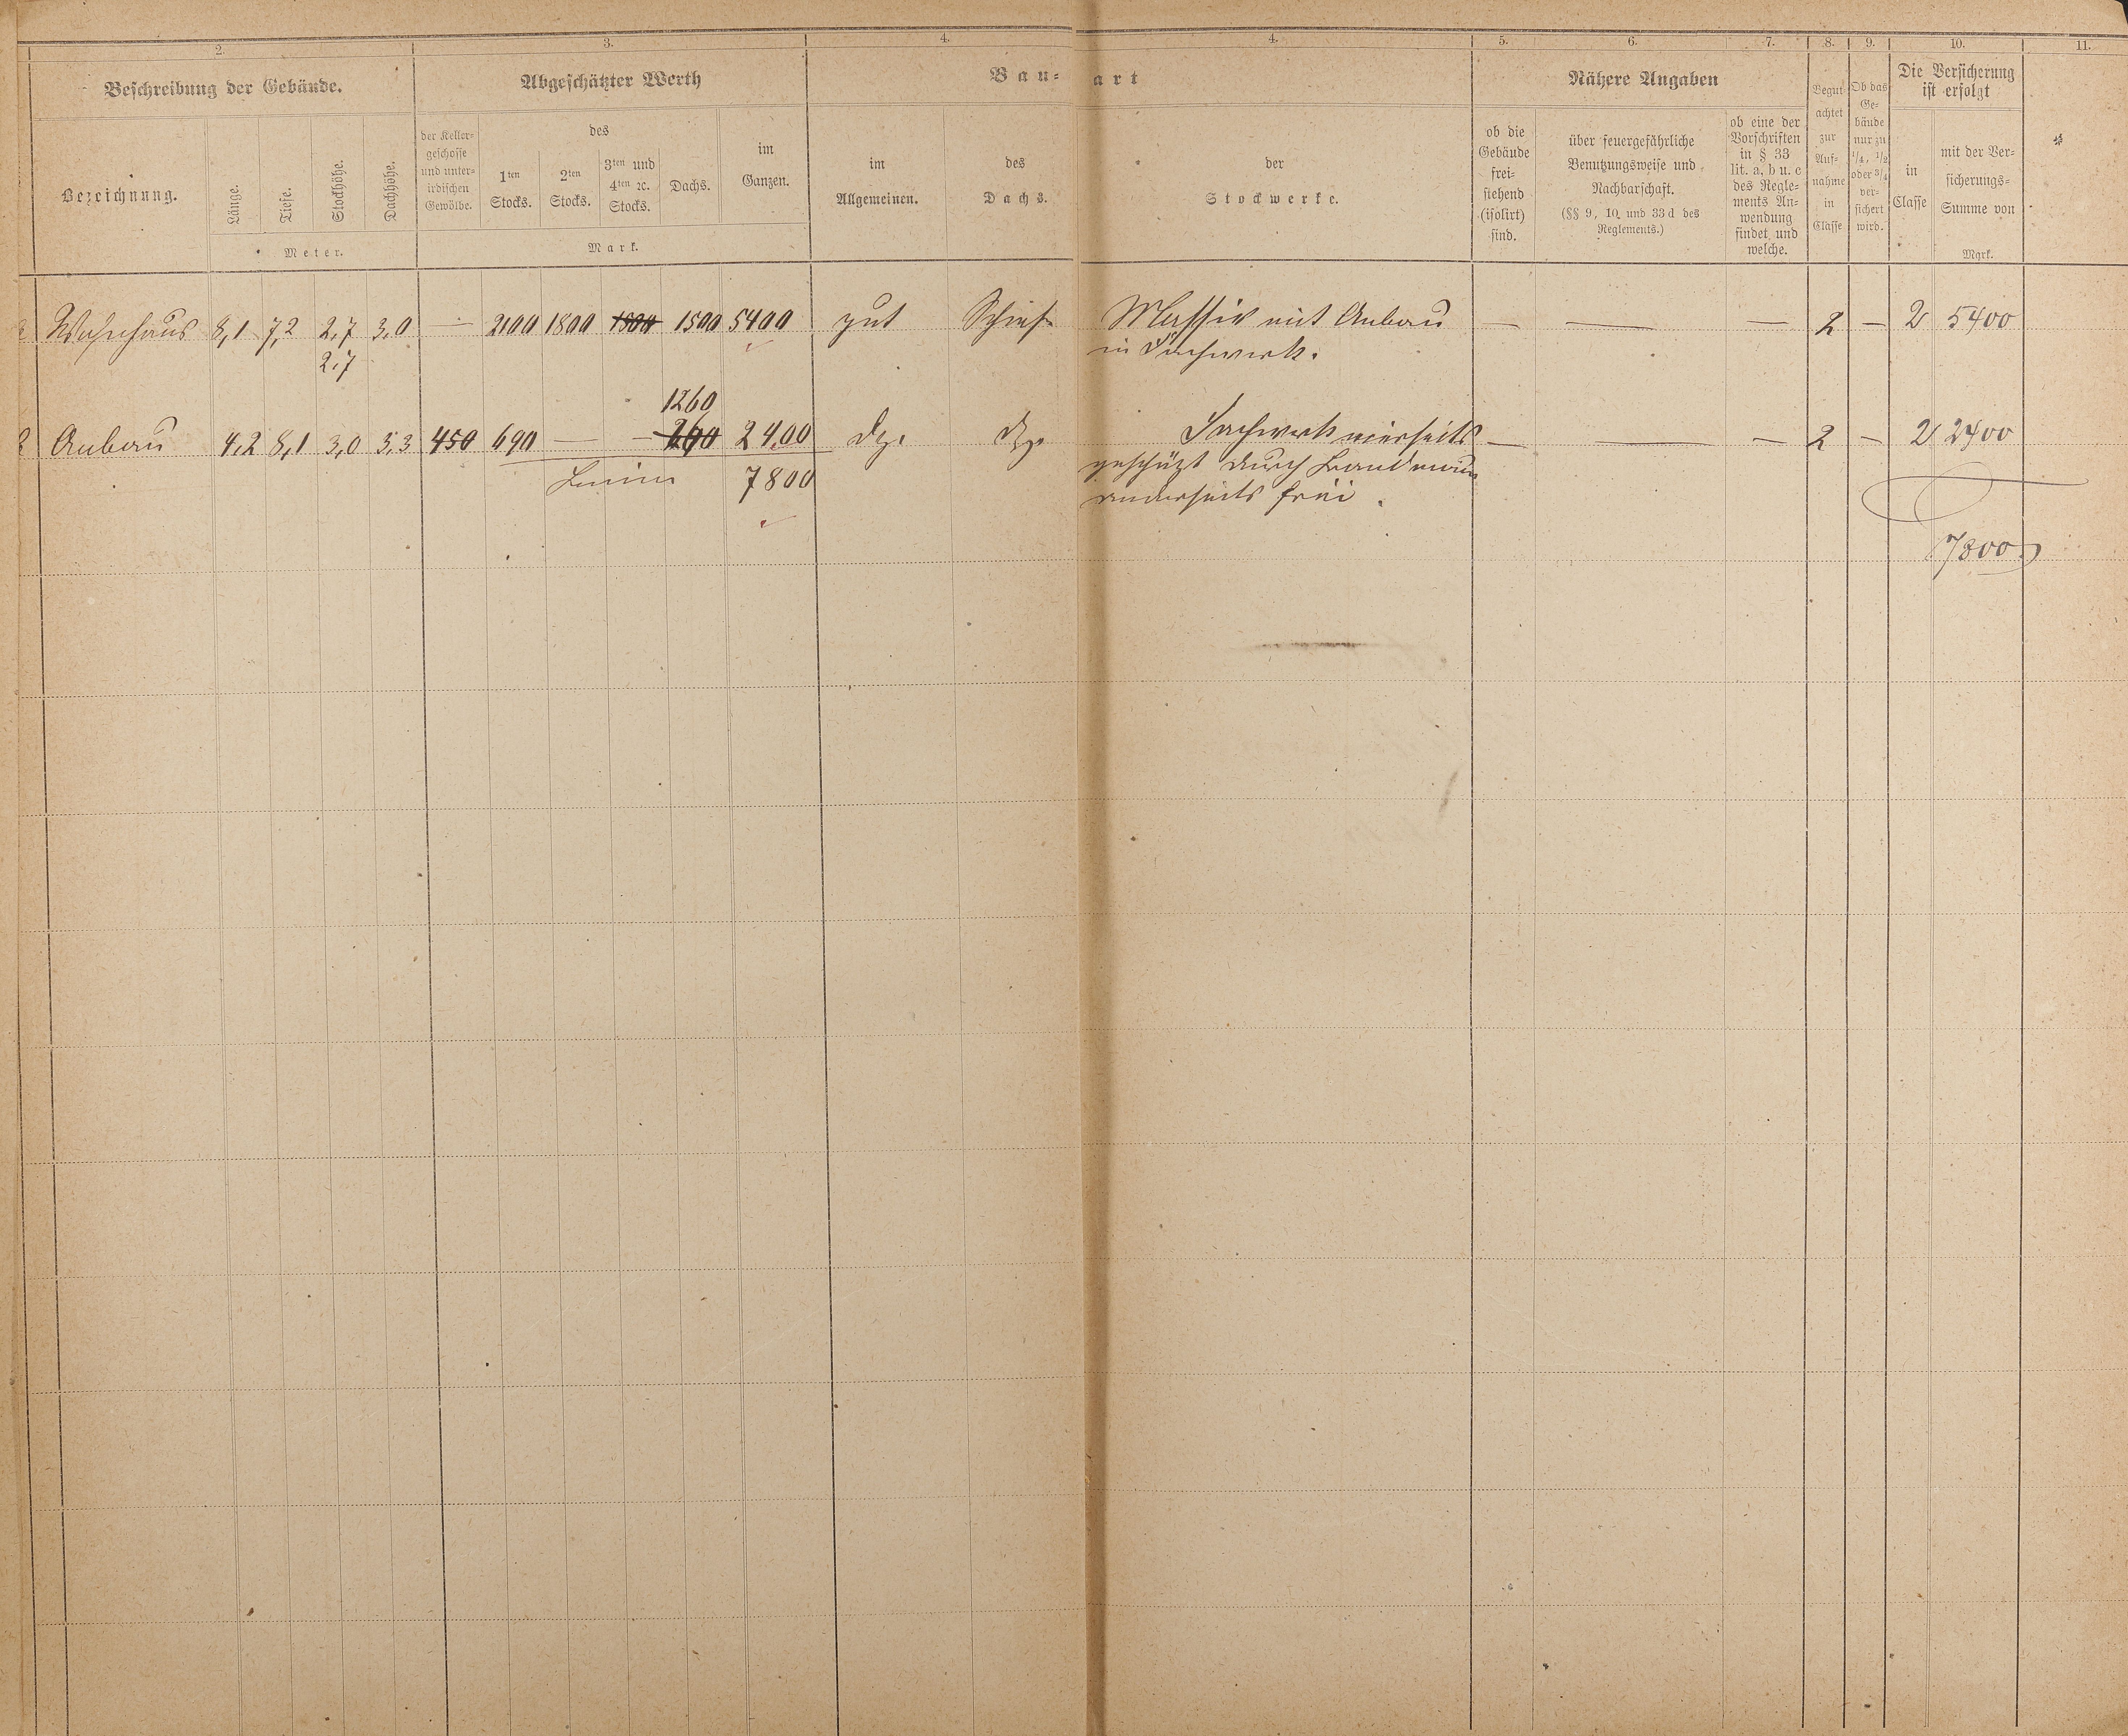 2. 3. 4. 4. 5. 6. 7. 8. 9. 10. 11.
Beschreibung der Gebäude. Abgeschätzter Werth Bau- art Nähere Angaben
Die Versicherung
ist erfolgt
Bezeichnung. Länge. Tiefe. Stockhöhe. Dachhöhe.
Meter.
der Keller-
geschosse
und unter-
irdischen
Gewölbe.
des
1ten
Stocks.
2ten
Stocks.
3ten und
4ten ꝛc.
Stocks.
Dachs.
im
Ganzen.
Mark.
im
Allgemeinen.
des
Dachs.
der
Stockwerke.
ob die
Gebäude
frei-
stehend
(isolirt)
sind.
über feuergefährliche
Benutzungsweise und
Nachbarschaft.
(§§ 9, 10 und 33 d des
Reglements.)
ob eine der
Vorschriften
in § 33
lit. a, b u. c
des Regle-
ments An-
wendung
findet und
welche.
Begut-
achtet
zur
Auf-
nahme
in
Classe
Ob das
Ge-
bäude
nur zu
1/4, 1/2
oder 3/4
ver-
sichert
wird.
in
Classe
mit der Ver-
sicherungs-
Summe von
Mark.
Wohnhaus 8,1 7,2 2,7 3,0 — 2100 1800 1800 1500 5400 gut Schief. Massiv mit Anbau — — — 2 — 2 5400
2,7 in Fachwerk.
1260
Anbau 4,2 8,1 3,0 3,3 450 690 — — 260 2400 dg. dg. Fachwerk einerseits — — — 2 — 2 2400
7800 geschüzt durch Brandmauer
anderseits frei.
7800